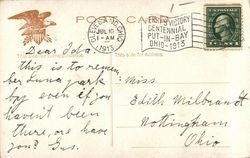 POST CARD
JUL 10
1913
PERRY'S VICTORY
CENTENNIAL
PUT-IN-BAY
OHIO-1913
Dear Ida
this is to remem
ber Luna park
by even if you
haven't been
there, are have
you? Gus.
Miss
Edith Milbrandt
Nottingham
Ohio